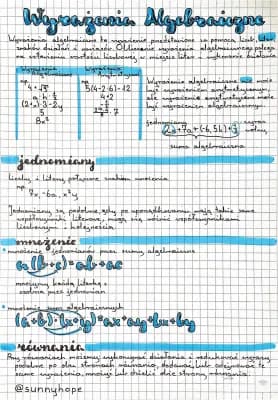 Wyrażenia Algebraiczne
Wyrażenia algebraiczne to wyrażenia przedstawione za pomocą liczb, liter,
znaków działań i nawiasów. Obliczanie wyrażenia algebraicznego polega
na wstawianiu wartości liczbowej w miejsce liter i wykonanie działania
Wyrażenia algebraiczne
np.
4 + √5
a · h · ½
8x²
np.
5(4-2·6)-12
4+2
Wyrażenie algebraiczne może
być wyrażeniem arytmetycznym,
ale wyrażenie arytmetyczne nie może
być wyrażeniem algebraicznym.
jednomiany
suma algebraiczna
jednomiany
Liczby i litery połączone znakiem mnożenia
np.
7x, -6a, x²y
Jednomiany są podobne, gdy po uporządkowaniu mają takie same
współczynniki literowe, mogą się różnić współczynnikami
liczbowymi i kolejnością
mnożenie
• mnożenie jednomianów przez sumy algebraiczne
a(b+c)=ab+ac
mnożymy każdą literkę z
osobna przez jednomian
• mnożenie sum algebraicznych
(a+b)·(x+y)=ax+ay+bx+by
równania
Przy równaniach możemy wykonywać działania i redukować wyrazy
podobne po obu stronach równania, dodawać lub odejmować te
same wyrażenia, mnożyć lub dzielić obie strony równania.
@sunnyhope